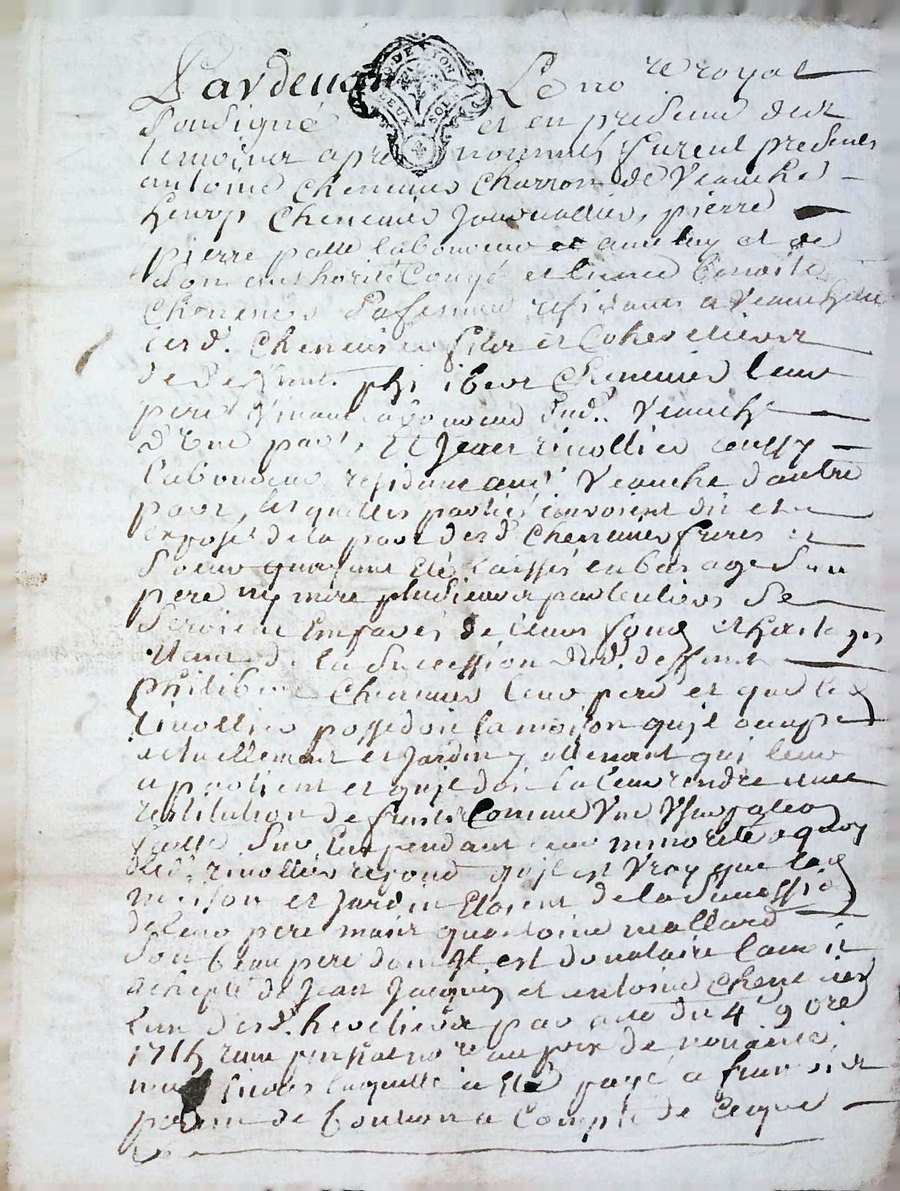 Pardevant Le no.re royal
GEN DE LYON DEUX SOLS
Soubsigné et en presence des
temoins apres nommés furent presents
antoine Chenevier Charron de Veauche
henry Chenevier Journallier, pierre
pierre palle laboureur et avec luy et de
son authorité Congé et licence benoite
Chenevier sa femme residants a Veauche
lesd. Chenevier filz et Coheretiers
de deffunt philibert Chenevier leur
pere vivant laboureur dud. Veauche
d'Une part, Et Jean rivollier aussy
laboureur residant aud. Veauche d'autre
part, lesquelles parties auroient dit et
exposé de la part desd. Cheneviers freres et
soeur quayant eté laissés en bas age sans
pere ny mere plusieurs particuliers se
seroient emparés de leurs fonds et heritages
venant de la succession dud. deffunt
Philibert Chenevier leur pere et que led.
rivollier possedoit la maison qu'il occupe
actuellement et jardin y attenant qui leur
apartient et qu'il doit la leur rendre avec
restitution de fruits Comme Une Usurpation
faitte sur Eux pendant leur minorité a quoy
led. rivollier repond qu'il est Vray que lad.
maison et jardin Etoient de la Succession
de leur pere mais qu'antoine mallard
son beau pere dont il est donataire l'avoit
achepté de Jean Jacques et antoine Chenevier
l'un desd. heretiers par acte du 4.e 9bre
1715 no.re au prix de
livres laquelle a eté payé a francois
de a Compte de ce que